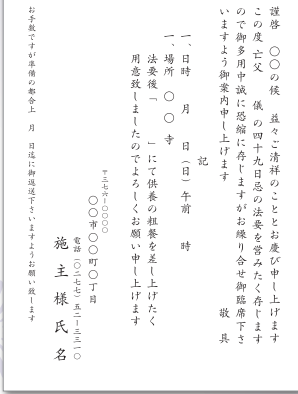 謹啓　〇〇の候　益々ご清祥のこととお慶び申し上げます
この度 亡父　　儀 の四十九日忌の法要を営みたく存じます
ので御多用中誠に恐縮に存じますがお繰り合せ御臨席下さ
いますよう御案内申し上げます　　敬具
記
一、日時　月　日（日）午前　時
一、場所　〇〇寺
法要後「　　」にて供養の粗餐を差し上げたく
用意致しましたのでよろしくお願い申し上げます
〒三七六ー〇〇〇〇
〇〇市〇〇町〇丁目
電話（〇二七七）五二ー三三一〇
施主様氏名
お手数ですが準備の都合上　月　日迄に御返送下さいますようお願い致します